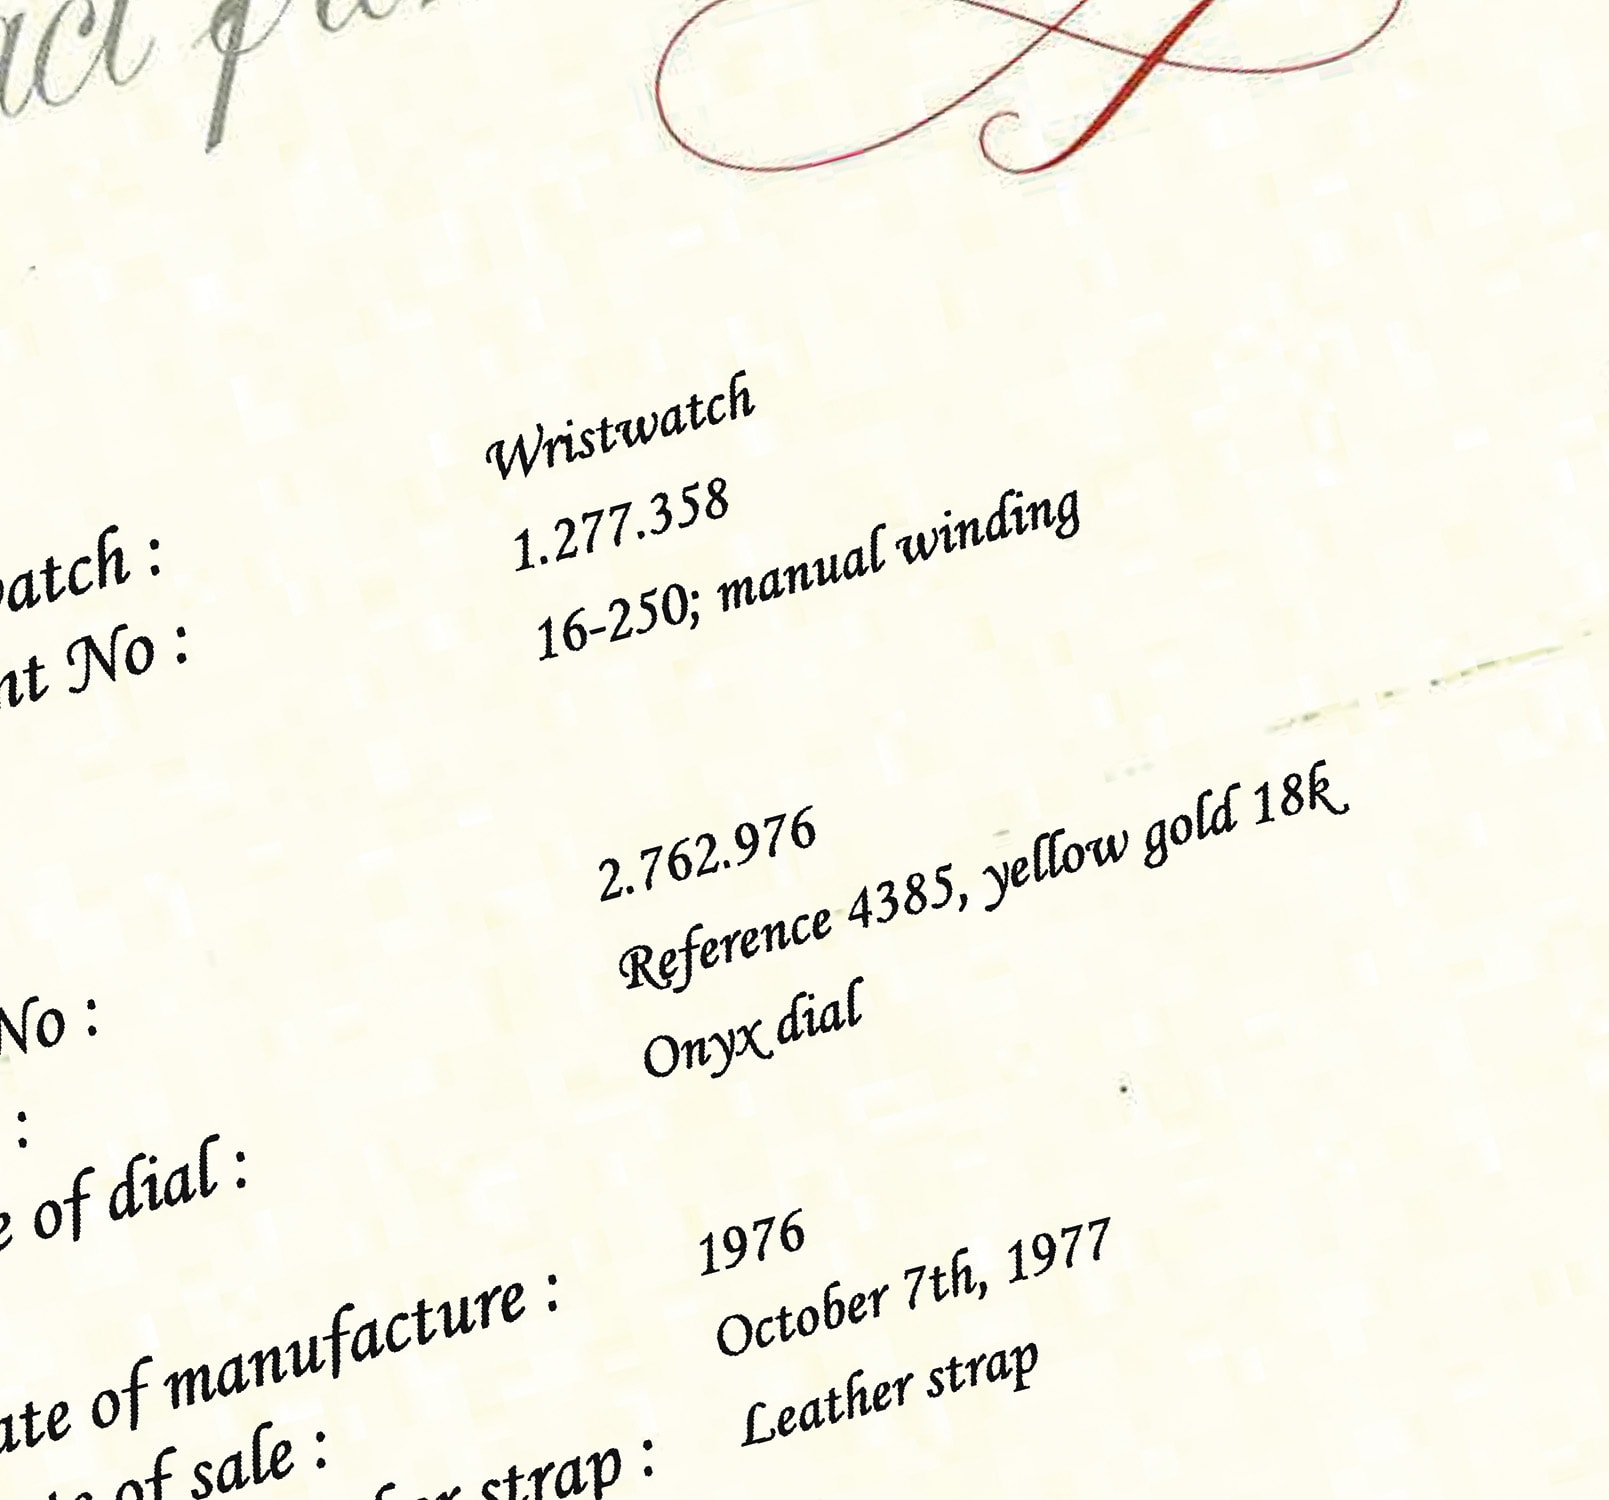 act
Wristwatch
atch : 1.277.358
nt No : 16-250; manual winding
No : 2.762.976
: Reference 4385, yellow gold 18k
e of dial : Onyx dial
ate of manufacture : 1976
e of sale : October 7th, 1977
er strap : Leather strap